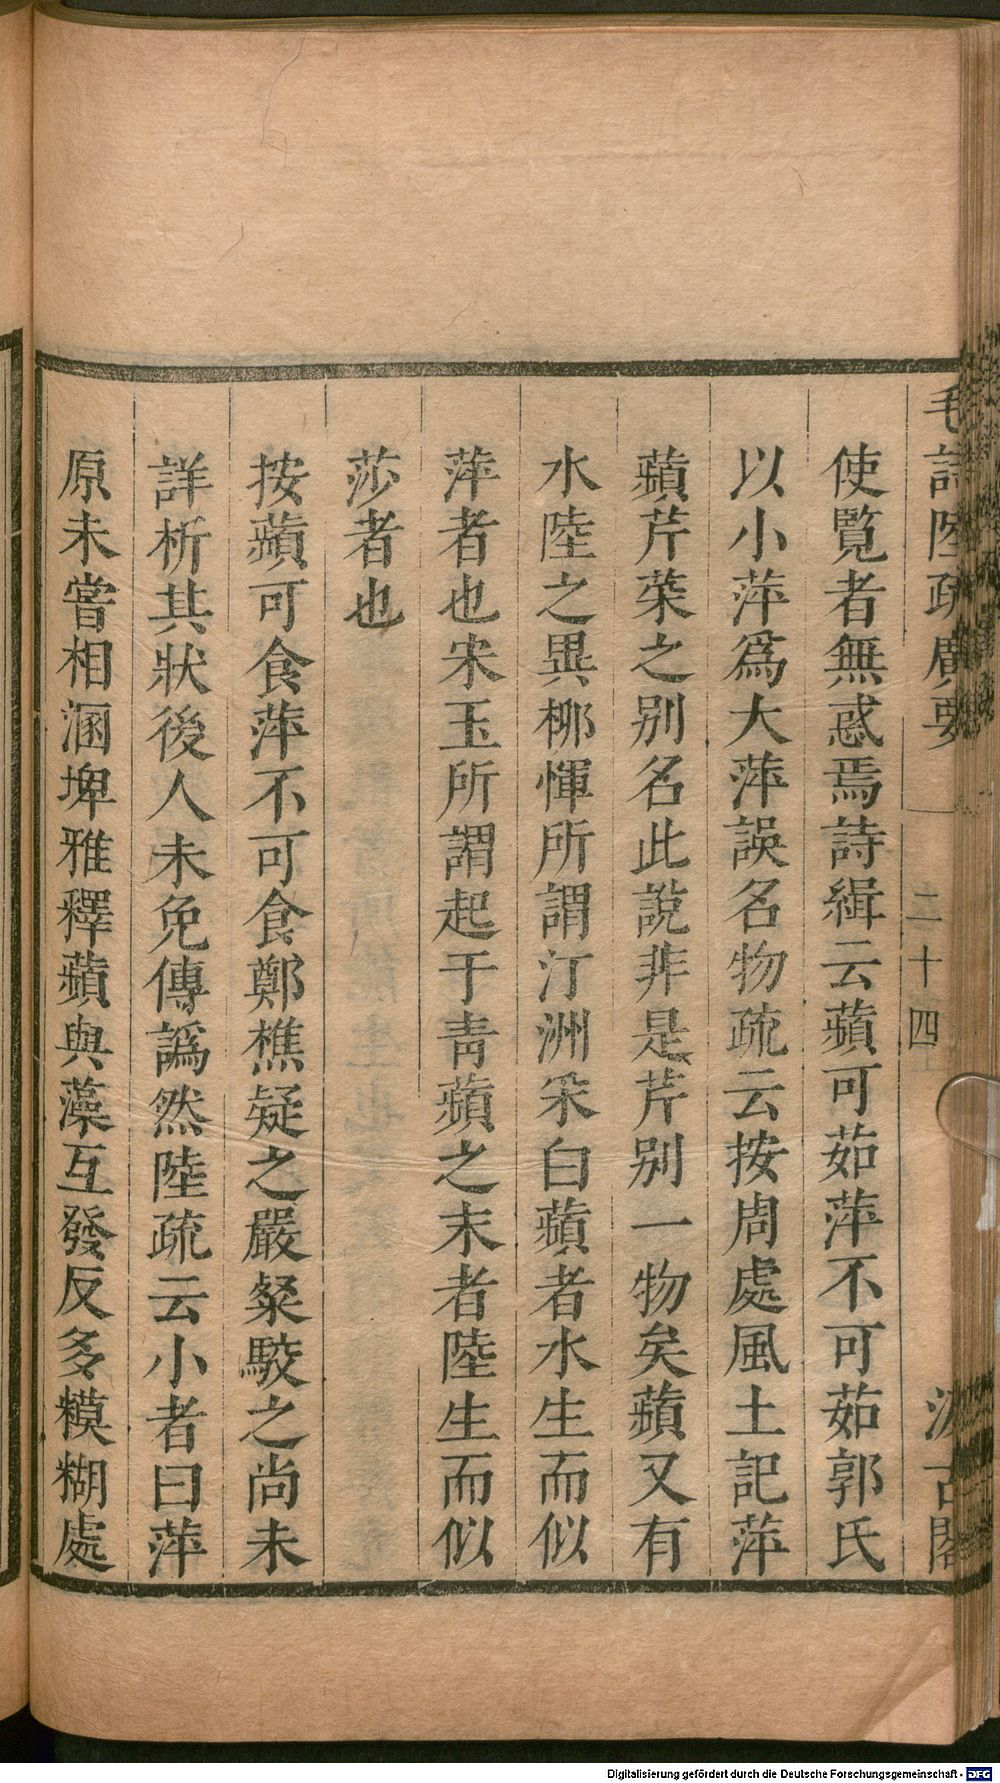 毛詩陸疏廣要
二十四
汲古閣
使覽者無惑焉詩緝云蘋可茹萍不可茹郭氏
以小萍爲大萍誤名物疏云按周處風土記萍
蘋芹菜之别名此說非是芹别一物矣蘋又有
水陸之異柳惲所謂汀洲采白蘋者水生而似
萍者也宋玉所謂起于靑蘋之末者陸生而似
莎者也
按蘋可食萍不可食鄭樵疑之嚴粲駮之尚未
詳析其狀後人未免傳譌然陸疏云小者曰萍
原未嘗相溷埤雅釋蘋與藻互發反多糢糊處
Digitalisierung gefördert durch die Deutsche Forschungsgemeinschaft - DFG